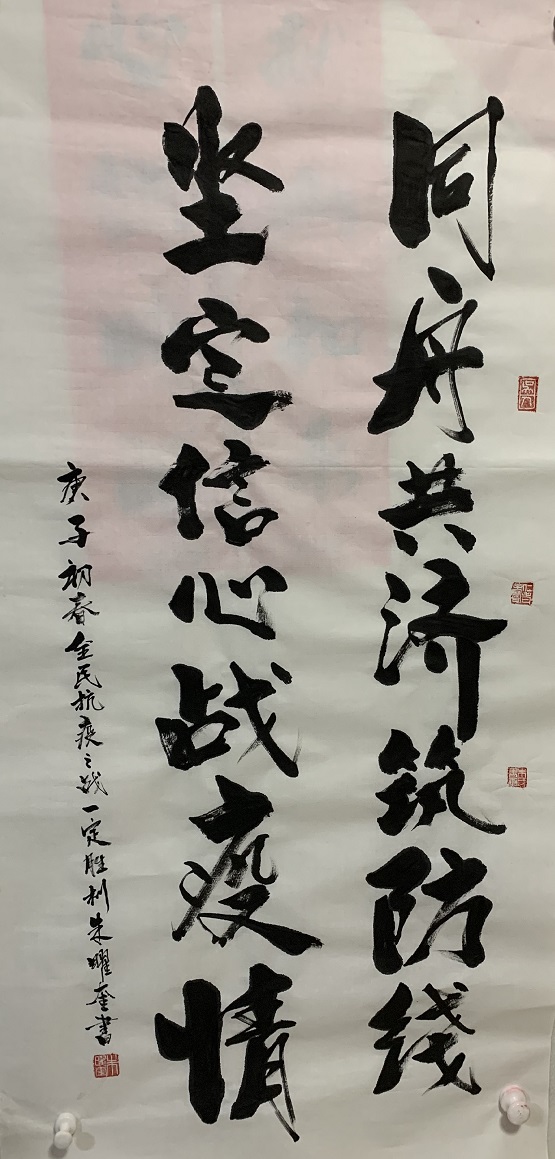 同舟共济筑防线
坚定信心战疫情
庚子初春全民抗疫之战一定胜利朱曜奎书